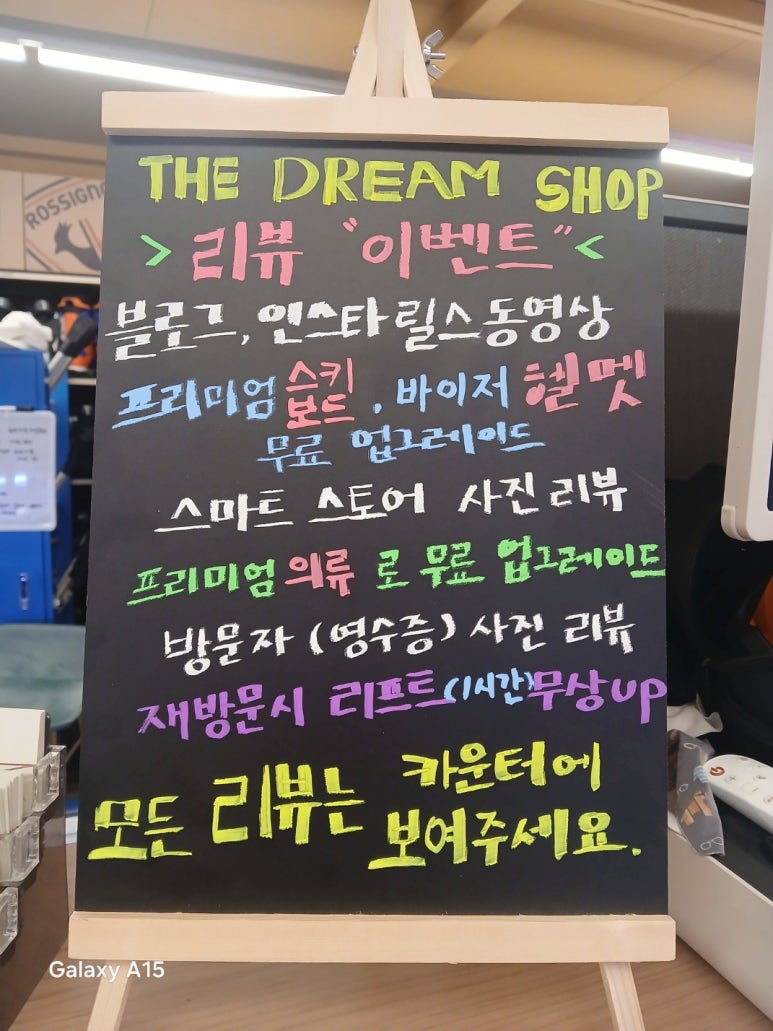 THE DREAM SHOP
> 리뷰 "이벤트" <
블로그, 인스타 릴스 동영상
프리미엄 스키 보드, 바이저 헬멧
무료 업그레이드
스마트 스토어 사진 리뷰
프리미엄 의류 로 무료 업그레이드
방문자 (영수증) 사진 리뷰
재방문시 리프트(1시간)무상UP
모든 리뷰는 카운터에
보여주세요.
ROSSIGN
Galaxy A15